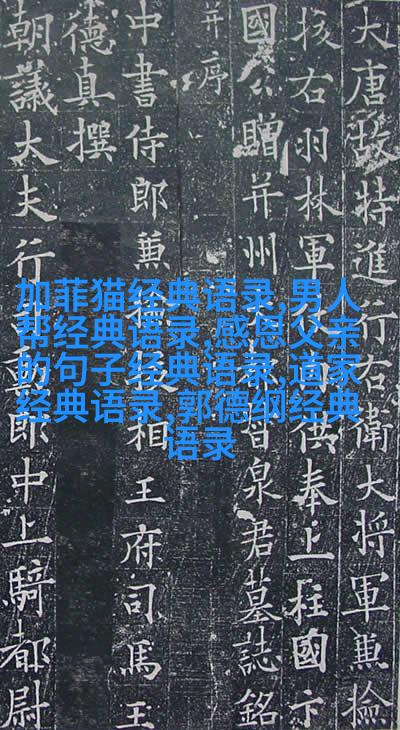 大唐故特進行右衛大將軍兼檢
校右羽林軍供奉上柱國卞
國公贈并州督泉君墓誌銘
并序
中書侍郎兼檢校相王府司馬王
德真撰
朝議大夫行勳郎中上騎都尉
加菲猫经典语录,男人
帮经典语录,感恩父亲
的句子经典语录,道家
经典语录,郭德纲经典
语录